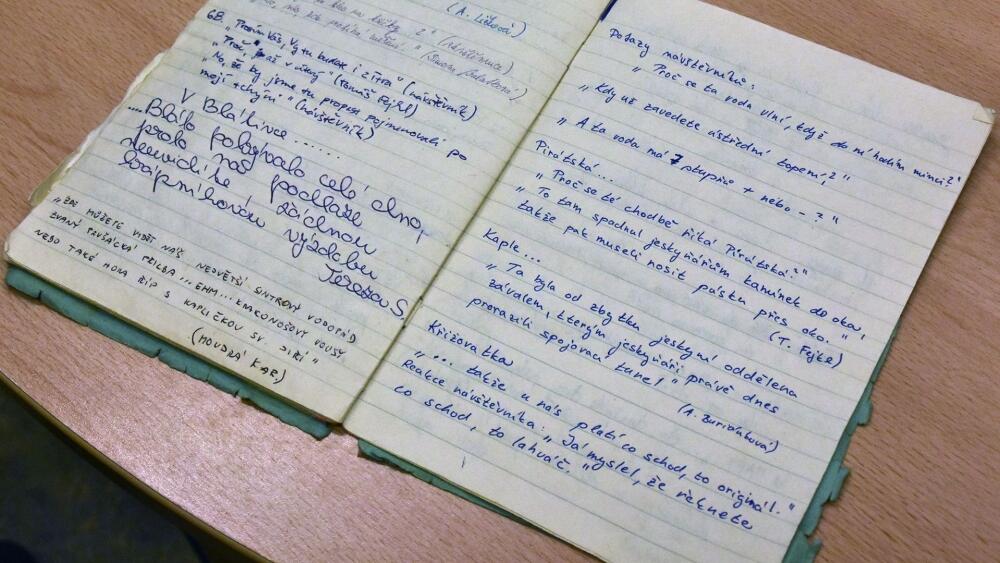 (A. Ličková)
68. "Prosím Vás, Vy tu budete i zítra" (návštěvník)
"Proč, až v úterý" (Tomáš Fejkl)
"No, že by jsme tu propes pojmenovali po
mojí tchýni." (návštěvník)
V Bláťivce ......
.... Bláto pokrývalo celé dno,
proto nad podlaze
neuvidíte žádnou
krápníkovou výzdobu
Tereza S.
"ZDE MŮŽETE VIDĚT NÁŠ NEJVĚTŠÍ SINTROVÝ VODOPÁD
ZVANÝ PRUSÁCKÁ PŘILBA... EHM... KRAKONOŠOVY VOUSY
NEBO TAKÉ HORA ŘÍP S KAPLIČKOU SV. JIŘÍ"
(MOUDRÁ K AR.)
Dotazy návštěvníků:
"Proč se ta voda vlní, když do ní hodím minci?"
"Kdy už zavedete ústřední topení?"
"A ta voda má 7 stupňů + nebo - ?"
Pirátská...
"Proč se té chodbě říká Pirátská?"
"To tam spadnul jeskyňářům kamínek do oka,
takže pak museli nosit pásku přes oko."
(T. Fejkl)
Kaple...
"Ta byla od zbytku jeskyní oddělena
závalem, kterým jeskyňáři právě dnes
prorazili spojovací tunel"
(A. Buriánková)
Křižovatka
"... takže u nás platí co schod, to originál."
Reakce návštěvníka: "Já myslel, že řeknete
co schod, to lahváč."